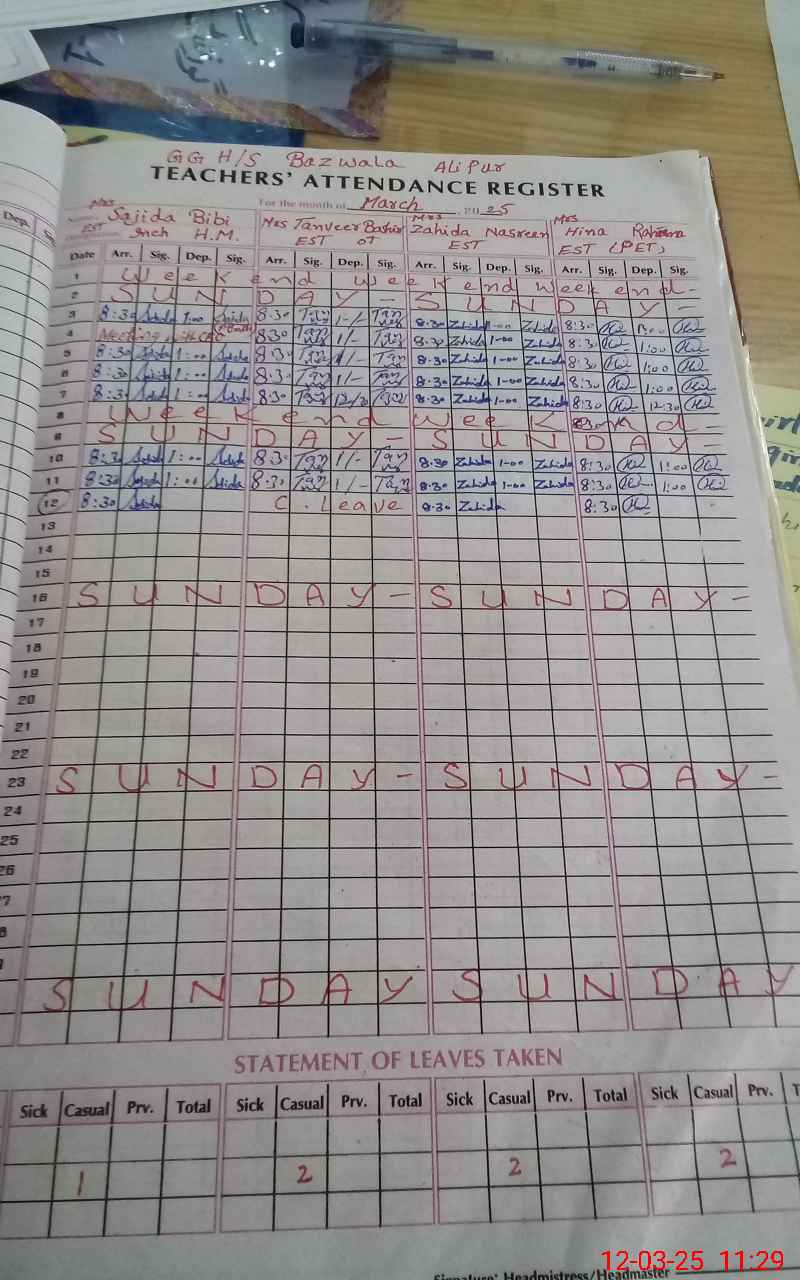 GG H/S Bazwala Alipur
TEACHERS' ATTENDANCE REGISTER
For the month of March 2025
Mrs Sajida Bibi Mrs Tanveer Bashir Mrs Zahida Nasreen Mrs Hina
EST Inch H.M. EST OT EST EST (PET)
Dep.
Date Arr. Sig. Dep. Sig. Arr. Sig. Dep. Sig. Arr. Sig. Dep. Sig. Arr. Sig. Dep. Sig.
1 Week end week end week end -
2 SUNDAY - SUNDAY -
3 8:30 Sajida 1:00 Sajida 8:30 1/- 8:30 Zahida 1-00 Zahida 8:30 1:00
4 Meeting with 8:30 1/- 8:30 Zahida 1-00 Zahida 8:30 1:00
5 8:30 Sajida 1:00 Sajida 8:30 1/- 8:30 Zahida 1-00 Zahida 8:30 1:00
6 8:30 Sajida 1:00 Sajida 8:30 1/- 8:30 Zahida 1-00 Zahida 8:30 1:00
7 8:30 Sajida 1:00 Sajida 8:30 8:30 Zahida 1-00 Zahida 8:30 12:30
8 Week end Week end -
9 SUNDAY - SUNDAY -
10 8:30 Sajida 1:00 Sajida 8:30 1/- 8:30 Zahida 1-00 Zahida 8:30 1:00
11 8:30 Sajida 1:00 Sajida 8:30 1/- 8:30 Zahida 1-00 Zahida 8:30 1:00
12 8:30 Sajida C. Leave 8:30 Zahida 8:30
13
14
15
16 SUNDAY - SUNDAY -
17
18
19
20
21
22
23 SUNDAY - SUNDAY -
24
25
26
7
8
SUNDAY SUNDAY
STATEMENT OF LEAVES TAKEN
Sick Casual Prv. Total Sick Casual Prv. Total Sick Casual Prv. Total Sick Casual Prv. T
1 2 2 2
Signature: Headmistress/Headmaster
12-03-25 11:29